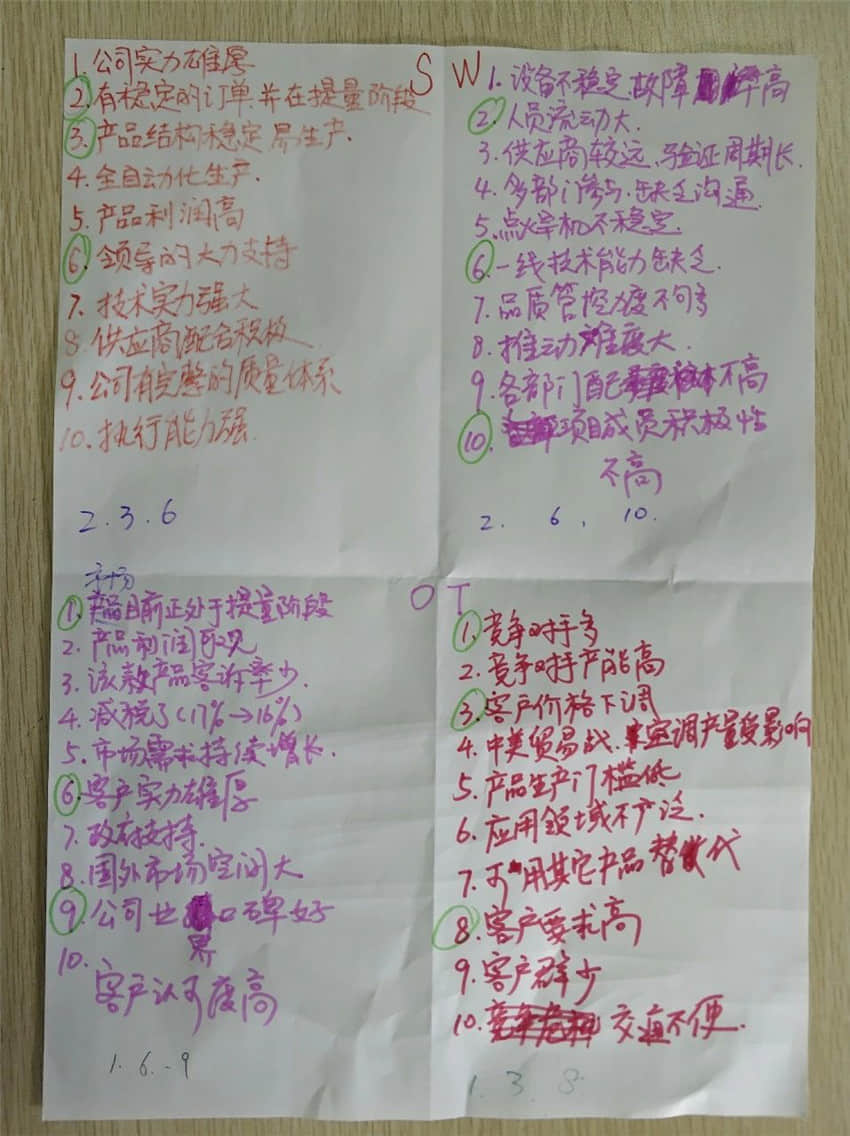 S
1. 公司实力雄厚
2. 有稳定的订单, 并在提量阶段
3. 产品结构稳定 易生产.
4. 全自动化生产.
5. 产品利润高
6. 领导的大力支持
7. 技术实力强大
8. 供应商配合积极.
9. 公司有完整的质量体系
10. 执行能力强.
2.3.6
W
1. 设备不稳定, 故障率高
2. 人员流动大.
3. 供应商较远, 验证周期长.
4. 多部门参与, 缺乏沟通.
5. 点焊机不稳定.
6. 一线技术能力缺乏.
7. 品质管控力度不够
8. 推动难度大.
9. 各部门配 不高
10. 项目成员积极性
不高
2. 6. 10.
O
市场
1. 目前正处于提量阶段
2. 产品利润可观
3. 该款产品客诉率少.
4. 减税了(17%→16%)
5. 市场需求持续增长.
6. 客户实力雄厚
7. 政府支持.
8. 国外市场空间大
9. 公司业界口碑好
10. 客户认可度高
1. 6. 9
T
1. 竞争对手多
2. 竞争对手产能高
3. 客户价格下调
4. 中美贸易战. 空调产量受影响
5. 产品生产门槛低
6. 应用领域不广泛.
7. 可用其它产品替代
8. 客户要求高
9. 客户群少
10. 交通不便.
1. 3. 8